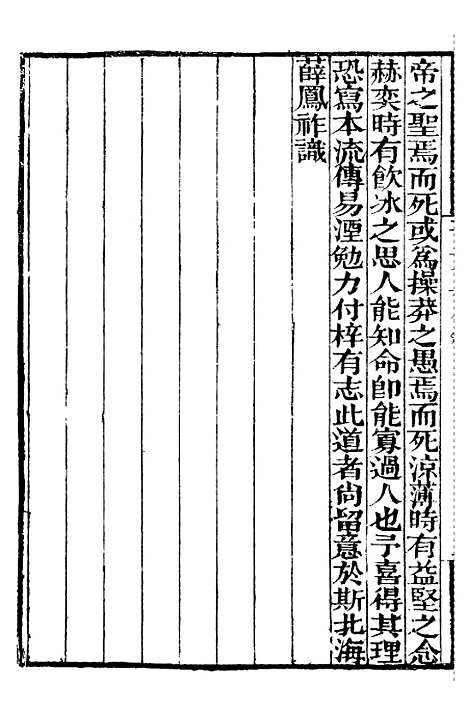 帝之聖焉而死或爲操莽之愚焉而死涼薄時有益堅之念
赫奕時有飮冰之思人能知命卽能寡過人也予喜得其理
恐寫本流傳易湮勉力付梓有志此道者尙留意於斯北海
薛鳳祚識